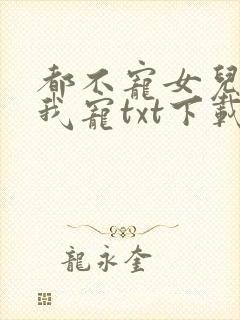 都不寵女兒
我寵txt下載
龍永奎